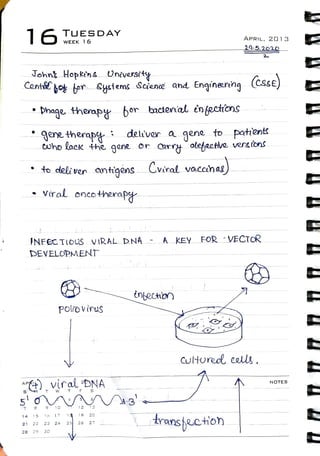 16 TUESDAY
WEEK 16
APRIL, 2013
19.5.2020
2
Johns Hopkins University
for Systems Science and Engineering (CSSE)
• Phage therapy for bacterial infections
• gene therapy : deliver a gene to patients
who lack the gene or carry defective versions
• to deliver antigens (viral vaccines)
• viral oncotherapy
INFECTIOUS VIRAL DNA - A KEY FOR VECTOR
DEVELOPMENT
infection
poliovirus
Cultured cells.
(+) viral DNA
NOTES
5' 3'
7 8 9 10 12 13
14 15 16 17 18 19 20
21 22 23 24 25 26 27
28 29 30
transfection